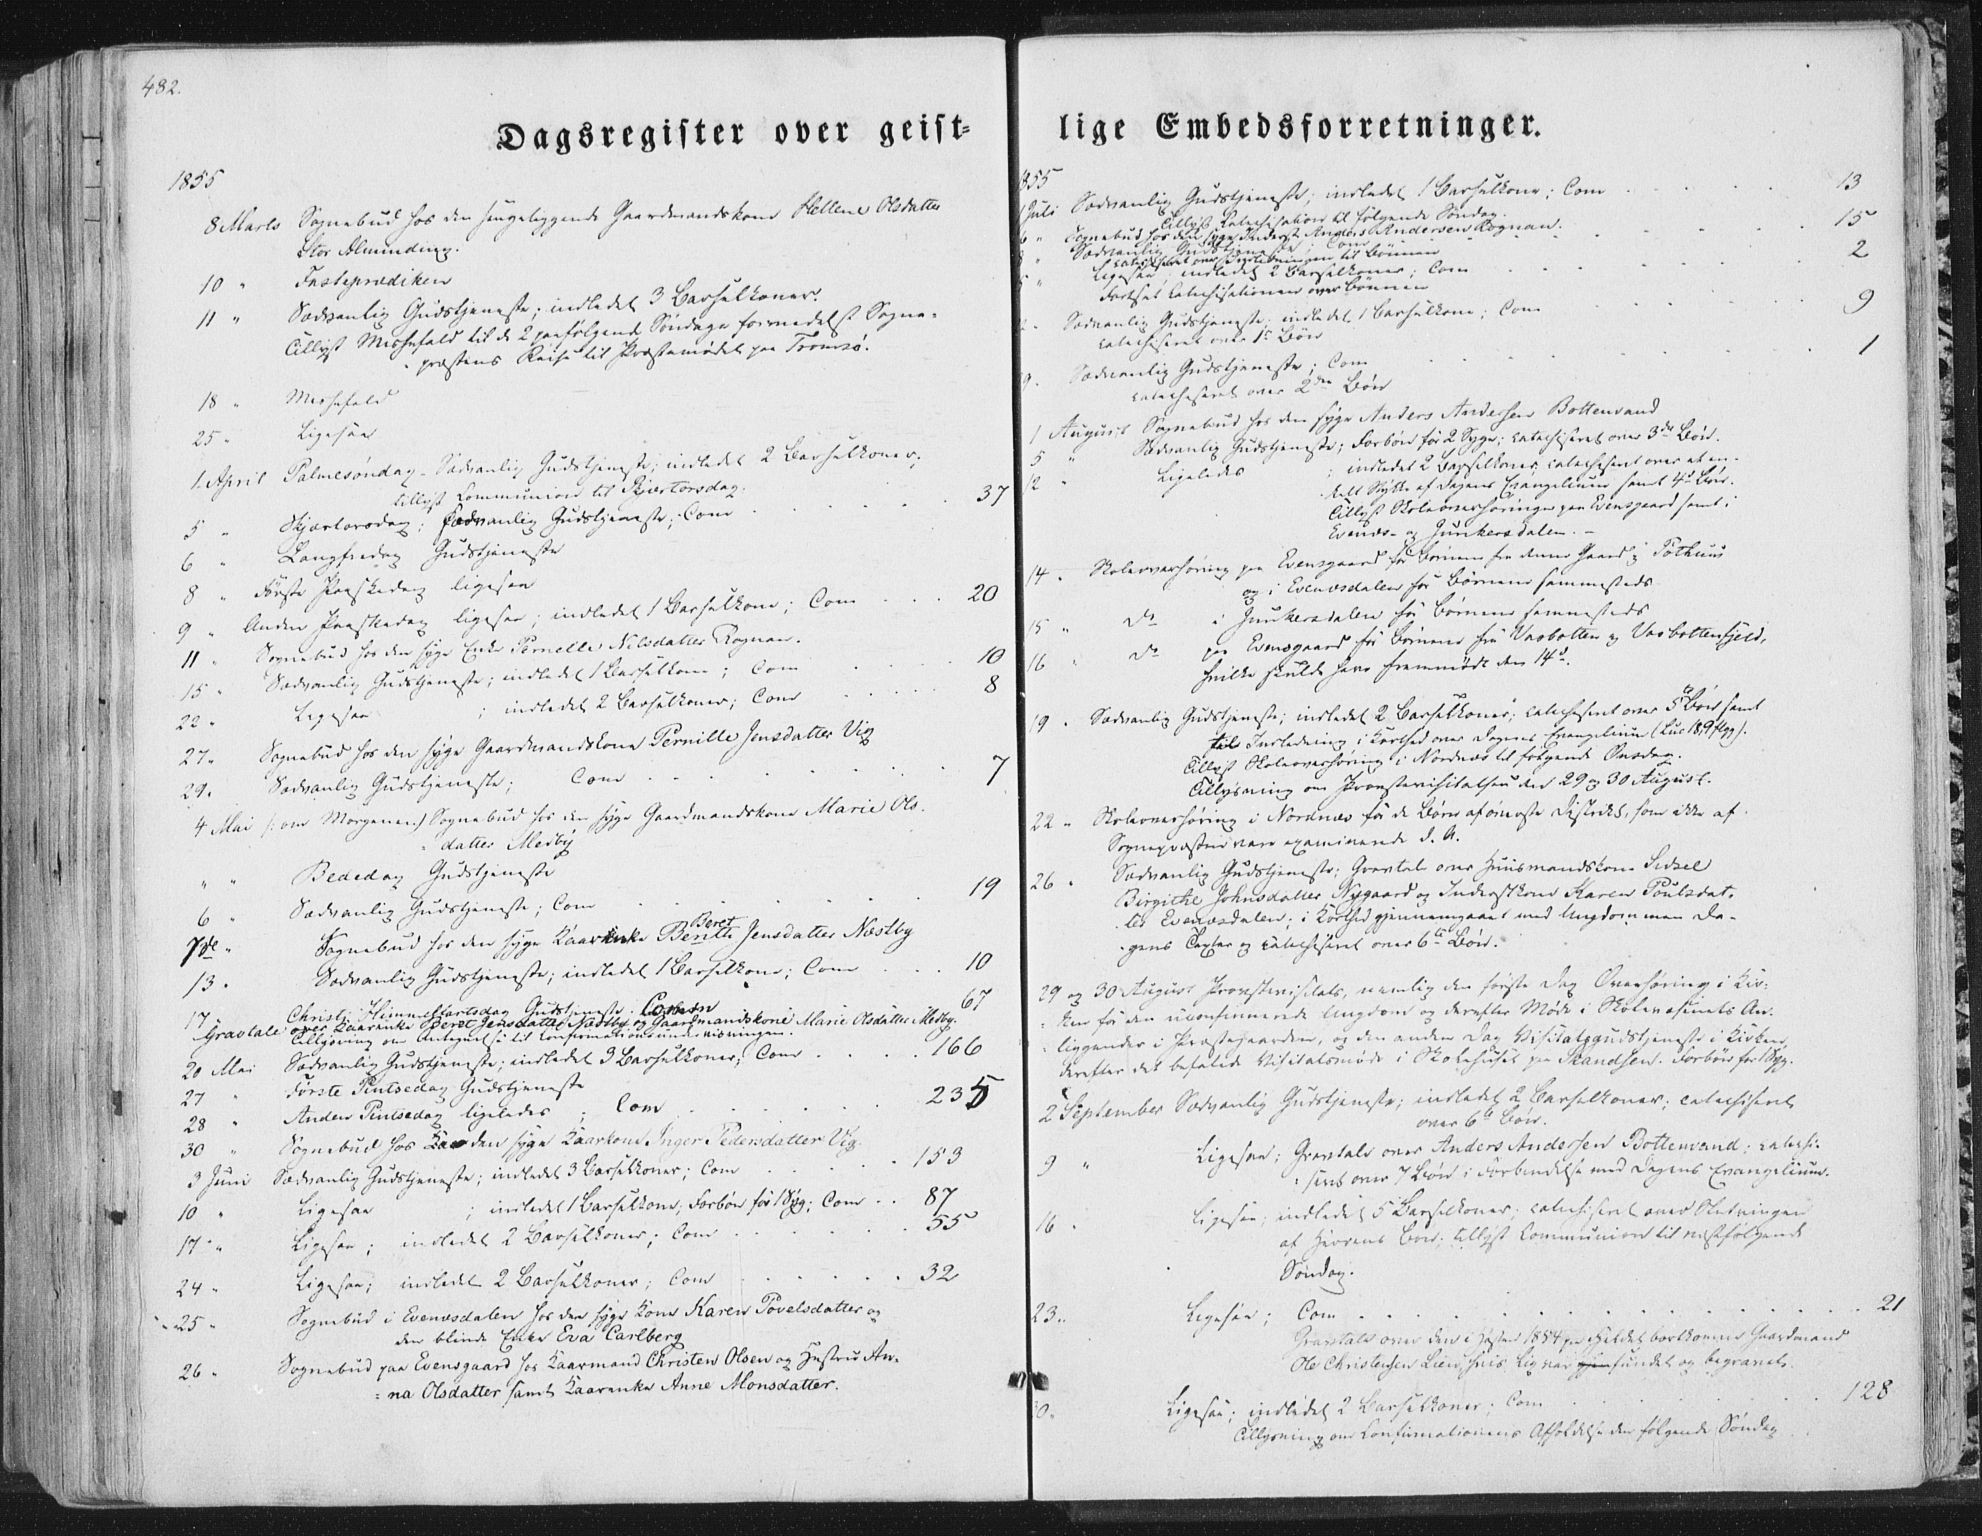 482.
Dagsregister over geist-
1855
8 Marts Sognebud hos den sengeliggende Gaardmandskone Hellene Olsdatter
Stor Alminding.
10 " Fasteprædiken
11 " Sædvanlig Gudstjeneste; indledet 3 Barselkoner.
Tillyst Messefald til de 2 paafølgende Søndage formedelst Sogne-
præstens Reise til Præstemødet paa Tromsø.
18 " Messefald
25 " Ligesaa
1 April Palmesøndag - Sædvanlig Gudstjeneste; indledet 2 Barselkoner;
tillyst Communion til Skjærtorsdag.
5 " Skjærtorsdag; Sædvanlig Gudstjeneste; Com 37
6 " Langfredag Gudstjeneste
8 " Første Paaskedag ligesaa
9 " Anden Paaskedag ligesaa; indledet 1 Barselkone; Com 20
11 " Sognebud hos den syge Enke Pernelle Nilsdatter Rognan.
15 " Sædvanlig Gudstjeneste; indledet 1 Barselkone; Com 10
22 " Ligesaa ; indledet 2 Barselkoner; Com 8
27 " Sognebud hos den syge Gaardmandskone Pernille Jensdatter Vig
29 " Sædvanlig Gudstjeneste; Com 7
4 Mai (: om Morgenen:) Sognebud hos den syge Gaardmandskone Marie Ols-
datter Medby
" " Bededag Gudstjeneste
6 " Sædvanlig Gudstjeneste; Com 19
7de " Sognebud hos den syge Kaarenke Berit Beret Jensdatter Næstby
13 " Sædvanlig Gudstjeneste; indledet 1 Barselkone; Com 10
17 " Christi Himmelfartsdag Gudstjeneste; Com 67
Gravtale over Kaarenke Beret Jensdatter Næstby og Gaardmandskone Marie Olsdatter Medby.
Tillysning om Antegnelse til Confirmationsunderviisningen.
20 Mai Sædvanlig Gudstjeneste; indledet 3 Barselkoner; Com 166
27 " Første Pintsedag Gudstjeneste
28 " Anden Pintsedag ligeledes ; Com 235
30 " Sognebud hos den syge Kaarkone Inger Pedersdatter Vig.
3 Juni Sædvanlig Gudstjeneste; indledet 3 Barselkoner; Com 153
10 " Ligesaa ; indledet 1 Barselkone; Forbøn for 1 Syg; Com 87
17 " Ligesaa ; indledet 2 Barselkoner; Com 55
24 " Ligesaa; indledet 2 Barselkoner; Com 32
25 " Sognebud i Evenesdalen hos den syge Kone Karen Povelsdatter og
den blinde Enke Eva Carlberg
26 " Sognebud paa Evensgaard hos Kaarmand Christen Olsen og Hustru An-
na Olsdatter samt Kaarenke Anne Monsdatter.
lige Embedsforretninger.
855
1 Juli Sædvanlig Gudstjeneste; indledet 1 Barselkone; Com 13
Tillyst Katechisation til følgende Søndag.
6 " Sognebud hos den syge Inderst Anders Andersen Rognan.
Sædvanlig Gudstjeneste; Com 15
catechiseret over Indledningen til Bønnen
Ligesaa indledet 2 Barselkoner; Com 2
fortsat Catechisationen over Bønnen
Sædvanlig Gudstjeneste; indledet 1 Barselkone; Com 9
catechiseret over 1ste Bøn
9. Sædvanlig Gudstjeneste; Com 1
catechiseret over 2den Bøn
1 August Sognebud hos den syge Anders Andersen Bottenvand
5 " Sædvanlig Gudstjeneste; Forbøn for 2 Syge; catechiseret over 3de Bøn.
12 " Ligeledes ; indledet 2 Barselkoner; catechiseret over et en-
kelt Stykke af Dagens Evangelium samt 4de Bøn.
Tillyst Skoleoverhøringer paa Evensgaard samt i
Evenes- og Junkersdalen. -
14 " Skoleoverhøring paa Evensgaard for Børnene fra denne Gaard og Pothuus
og i Evenesdalen for Børnene sammesteds
15 " Do i Junkersdalen for Børnene sammesteds
16 " Do paa Evensgaard for Børnene fra Vasbotten og Vasbottenfjeld,
hvilke skulde have fremmødt den 14de.
19 " Sædvanlig Gudstjeneste; indledet 2 Barselkoner; catechiseret over 5te Bøn samt
Indledning i Korthed over Dagens Evangelium (Luc 18, 9 flgg).
Tillyst Skoleoverhøring i Nordnes til følgende Onsdag.
Tillysning om Provstevisitatsen den 29 og 30 August.
22 " Skoleoverhøring i Nordnæs for de Børn af øverste District, som ikke af
Sognepræsten vare examinerede d. A.
26 " Sædvanlig Gudstjeneste; Gravtale over Huusmandskone Sidsel
Birgithe Johnsdatter Nygaard og Inderstkone Karen Poulsdat-
ter Evenesdalen; i Korthed gjennemgaaet med Ungdommen Da-
gens Texter og catechiseret over 6te Bøn.
29 og 30 August Provstevisitats, nemlig den første Dag Overhøring i Kir-
ken for den uconfirmerede Ungdom og derefter Møde i Skolevæsenets An-
liggender i Præstegaarden, og den anden Dag Visitatsgudstjeneste i Kirken,
derefter det befalede Visitatsmøde i Skolehuset paa Skandsen. Forbøn for 1 Syg.
2 September Sædvanlig Gudstjeneste; indledet 2 Barselkoner; catechiseret
over 6te Bøn.
9 " Ligesaa; Gravtale over Anders Andersen Bottenvand; catechi-
seret over 7 Bøn i Forbindelse med Dagens Evangelium.
16 " Ligesaa; indledet 5 Barselkoner; catechiseret over Slutningen
af Herrens Bøn; tillyst Communion til næstfølgende
Søndag.
23 " Ligesaa; Com 21
Gravtale over den i Høsten 1854 paa Fjeldet bortkomne Gaardmand
Ole Christensen Lien, hvis Lig var funden og begravet.
Ligesaa; indledet 2 Barselkoner; Com 128
Tillysning om Confirmationens Afholdelse den følgende Søndag